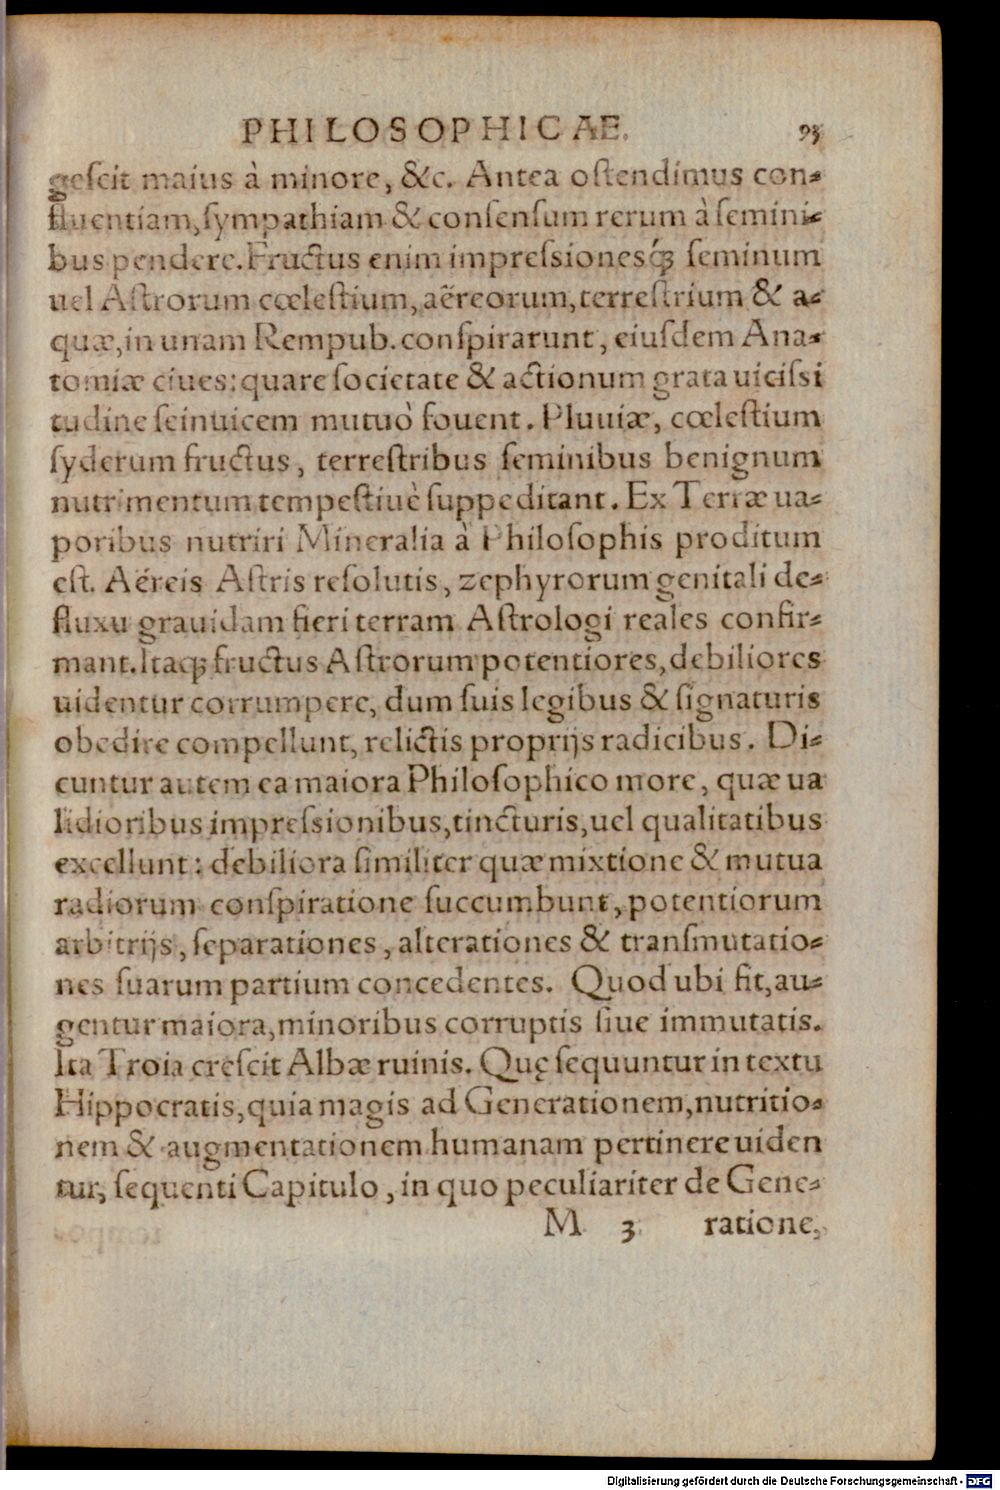 PHILOSOPHICAE. 93
geſcit maius à minore, &c. Antea oſtendimus con-
fluentiam, ſympathiam & conſenſum rerum à ſemini-
bus pendere. Fructus enim impreſsionesq́ꝫ ſeminum
uel Aſtrorum cœleſtium, aëreorum, terreſtrium & a-
quæ, in unam Rempub. conſpirarunt, eiuſdem Ana-
tomiæ ciues: quare ſocietate & actionum grata uiciſsi
tudine ſeinuicem mutuò fouent. Pluuiæ, cœleſtium
ſyderum fructus, terreſtribus ſeminibus benignum
nutrimentum tempeſtiuè ſuppeditant. Ex Terræ ua-
poribus nutriri Mineralia à Philoſophis proditum
eſt. Aéreis Aſtris reſolutis, zephyrorum genitali de-
fluxu grauidam fieri terram Aſtrologi reales confir-
mant. Itaqꝫ fructus Aſtrorum potentiores, debiliores
uidentur corrumpere, dum ſuis legibus & ſignaturis
obedire compellunt, relictis proprijs radicibus. Di-
cuntur autem ea maiora Philoſophico more, quæ ua
lidioribus impreſsionibus, tincturis, uel qualitatibus
excellunt: debiliora ſimiliter quæ mixtione & mutua
radiorum conſpiratione ſuccumbunt, potentiorum
arbitrijs, ſeparationes, alterationes & tranſmutatio-
nes ſuarum partium concedentes. Quod ubi fit, au-
gentur maiora, minoribus corruptis ſiue immutatis.
Ita Troia creſcit Albæ ruinis. Quę ſequuntur in textu
Hippocratis, quia magis ad Generationem, nutritio-
nem & augmentationem humanam pertinere uiden
tur, ſequenti Capitulo, in quo peculiariter de Gene-
M 3 ratione,
Digitalisierung gefördert durch die Deutsche Forschungsgemeinschaft - DFG